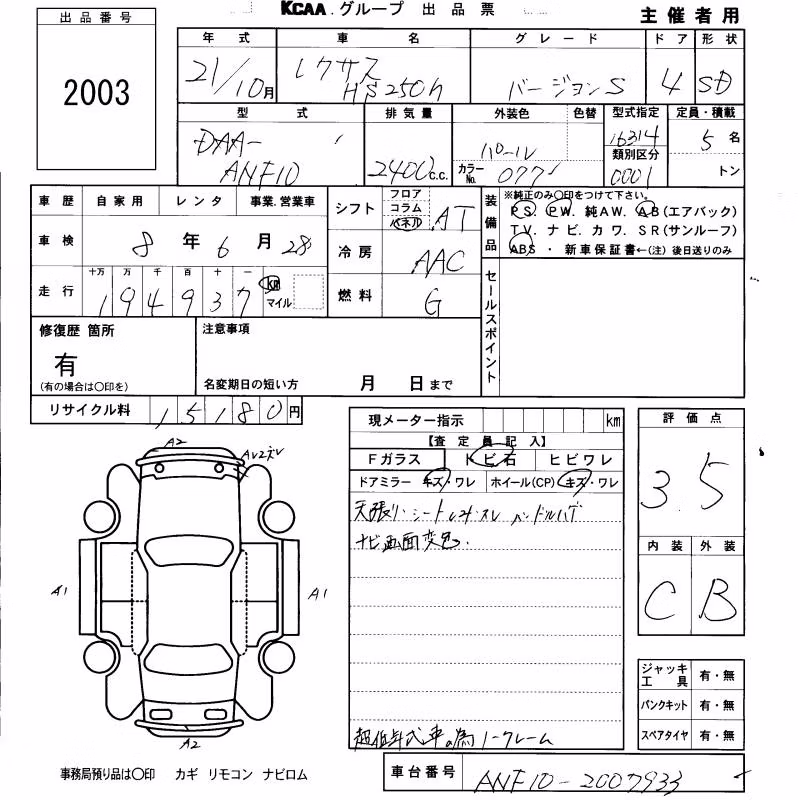 KCAA.グループ 出品票
主催者用
出品番号
2003
年式 車名 グレード ドア 形状
21/10月 レクサス HS250h バージョンS 4 SD
型式 排気量 外装色 色替 型式指定 定員・積載
DAA-ANF10 2400c.c. パール カラーNo. 077 16314 5名
類別区分
0001 トン
車歴 自家用 レンタ 事業.営業車
車検 8年6月28
走行 十万 万 千 百 十 一
194937 km マイル
シフト フロア コラム パネル AT
冷房 AAC
燃料 G
装備品
※純正のみ○印をつけて下さい。
PS. PW. 純AW. AB(エアバック)
TV. ナビ. カワ. SR(サンルーフ)
ABS・新車保証書←(注)後日送りのみ
セールスポイント
修復歴 箇所
有
(有の場合は○印を)
注意事項
名変期日の短い方 月 日まで
リサイクル料 15180円
現メーター指示 km
【査定員記入】
Fガラス トビ石 ヒビワレ
ドアミラー キズ・ワレ ホイール(CP) キズ・ワレ
天張り・シート ハンドルハゲ
ナビ画面変色.
超低年式車の為ノークレーム
評価点
3.5
内装 外装
C B
A2
A1
A1
A2
ジャッキ工具 有・無
パンクキット 有・無
スペアタイヤ 有・無
事務局預り品は○印 カギ リモコン ナビロム
車台番号 ANF10-2007933